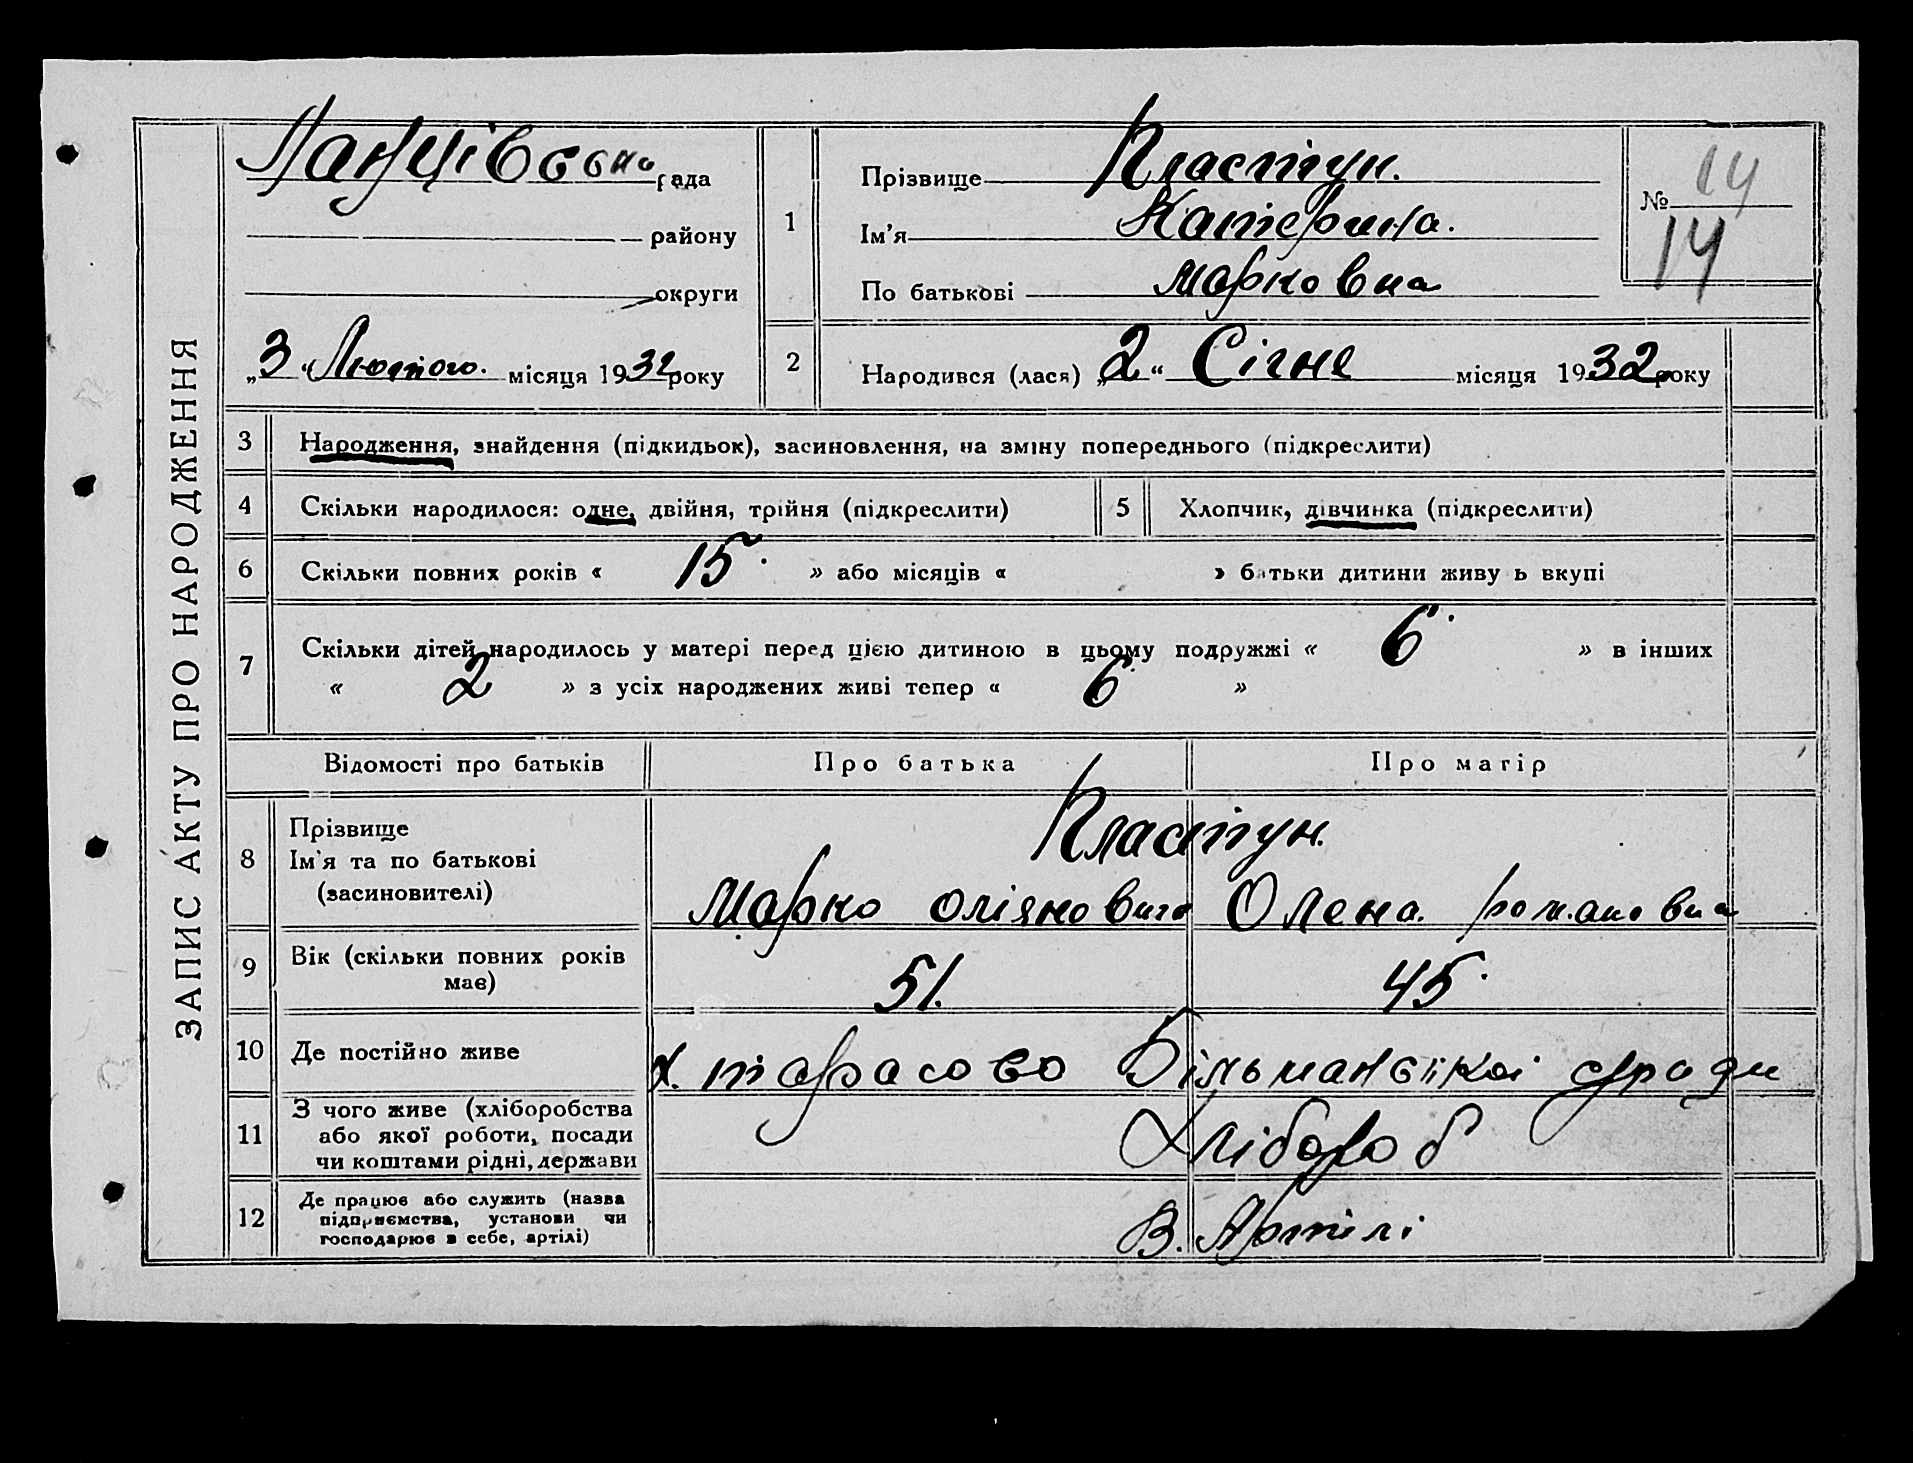 ЗАПИС АКТУ ПРО НАРОДЖЕННЯ
рада
району
округи
„3“ Лютого. місяця 1932 року
1
Прізвище Пластун.
Ім'я Катерина.
По батькові Марковна
№ 14
14
2
Народився (лася) „2“ Січне місяця 1932 року
3 Народження, знайдення (підкидьок), засиновлення, на зміну попереднього (підкреслити)
4 Скільки народилося: одне, двійня, трійня (підкреслити)
5 Хлопчик, дівчинка (підкреслити)
6 Скільки повних років « 15 » або місяців « » батьки дитини живуть вкупі
7 Скільки дітей народилось у матері перед цією дитиною в цьому подружжі « 6 » в інших
« 2 » з усіх народжених живі тепер « 6 »
Відомості про батьків Про батька Про матір
8 Прізвище
Ім'я та по батькові
(засиновителі)
Пластун.
Марко Олена. романовна
9 Вік (скільки повних років
має)
51. 45.
10 Де постійно живе
х. тарасово сради
11 З чого живе (хліборобства
або якої роботи, посади
чи коштами рідні, держави
Хлібороб
12 Де працює або служить (назва
підприємства, установи чи
господарює в себе, артілі)
В. Артілі